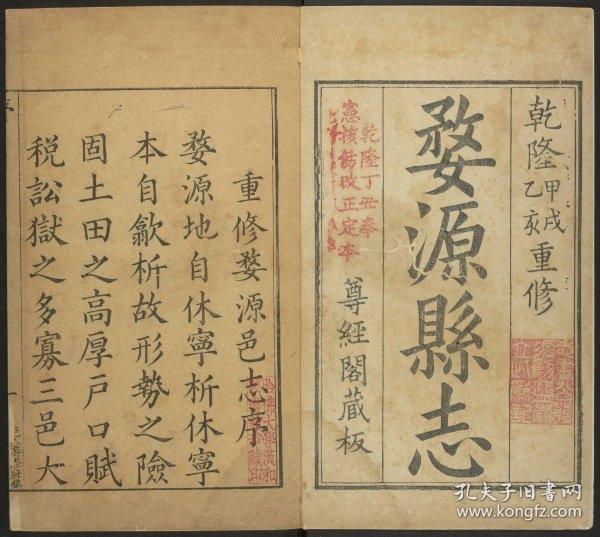 乾隆甲戌乙亥重修
婺源縣志
乾隆丁丑奉
憲檄飭改正定本
尊經閣藏板
重修婺源邑志序
婺源地自休寧析休寧
本自歙析故形勢之險
固土田之高厚戶口賦
稅訟獄之多寡三邑大
一
孔夫子旧书网
www.kongfz.com